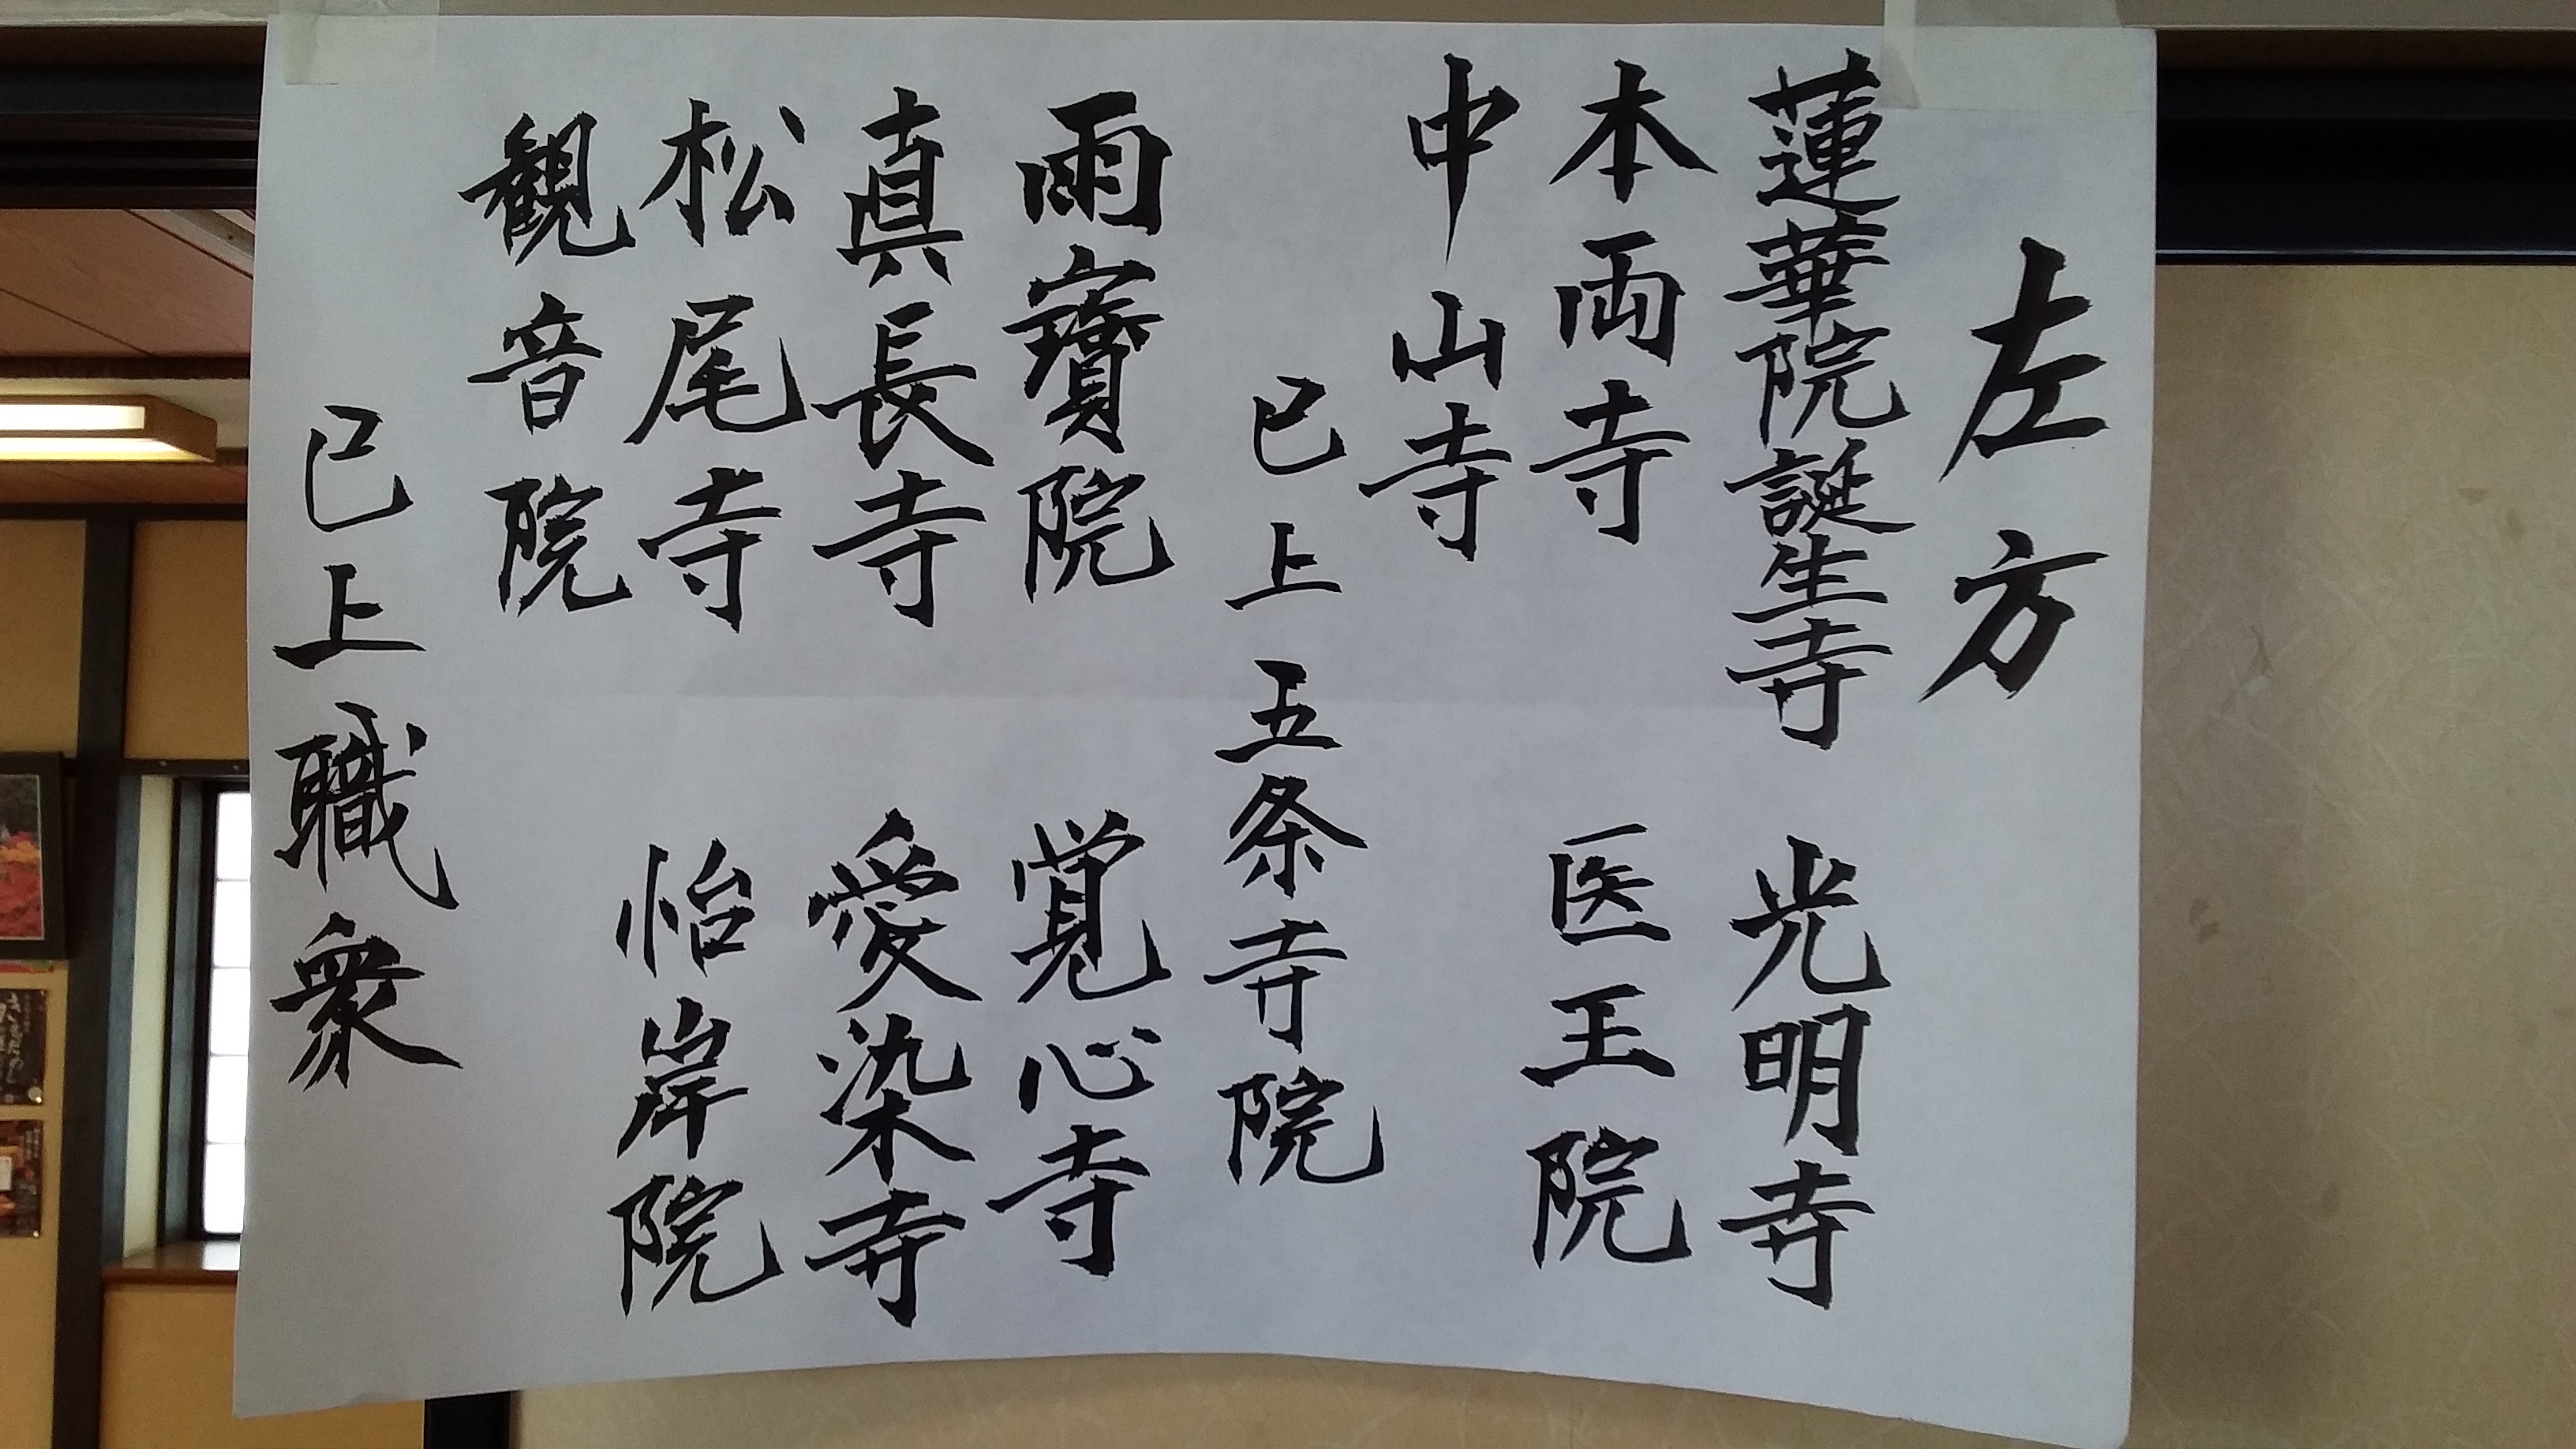 左方
蓮華院誕生寺 光明寺
本両寺 医王院
中山寺
已上 五条寺院
雨寳院 覚心寺
真長寺 愛染寺
松尾寺 怡岸院
観音院
已上職衆